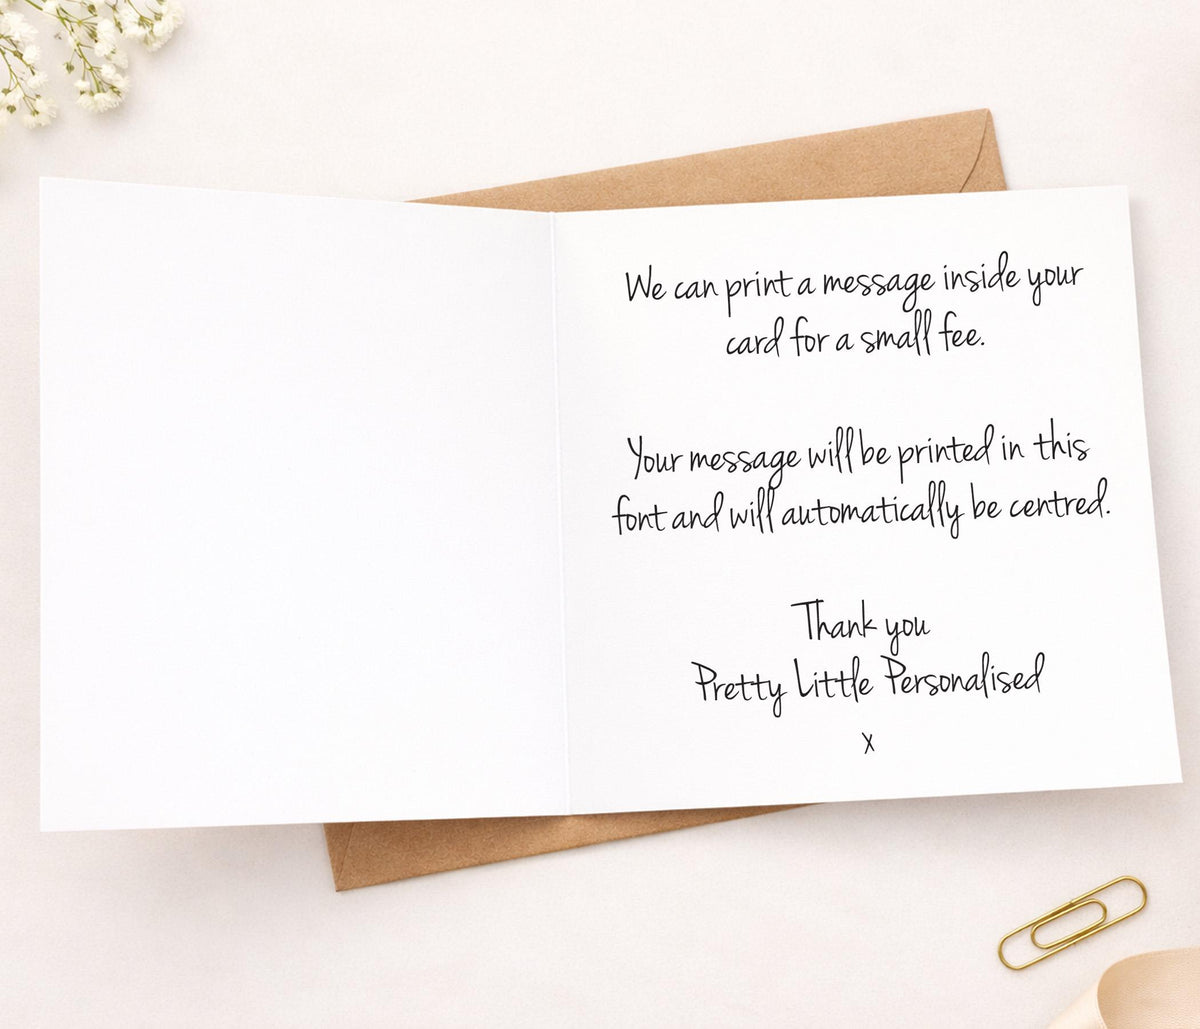 We can print a message inside your
card for a small fee.
Your message will be printed in this
font and will automatically be centred.
Thank you
Pretty Little Personalised
x